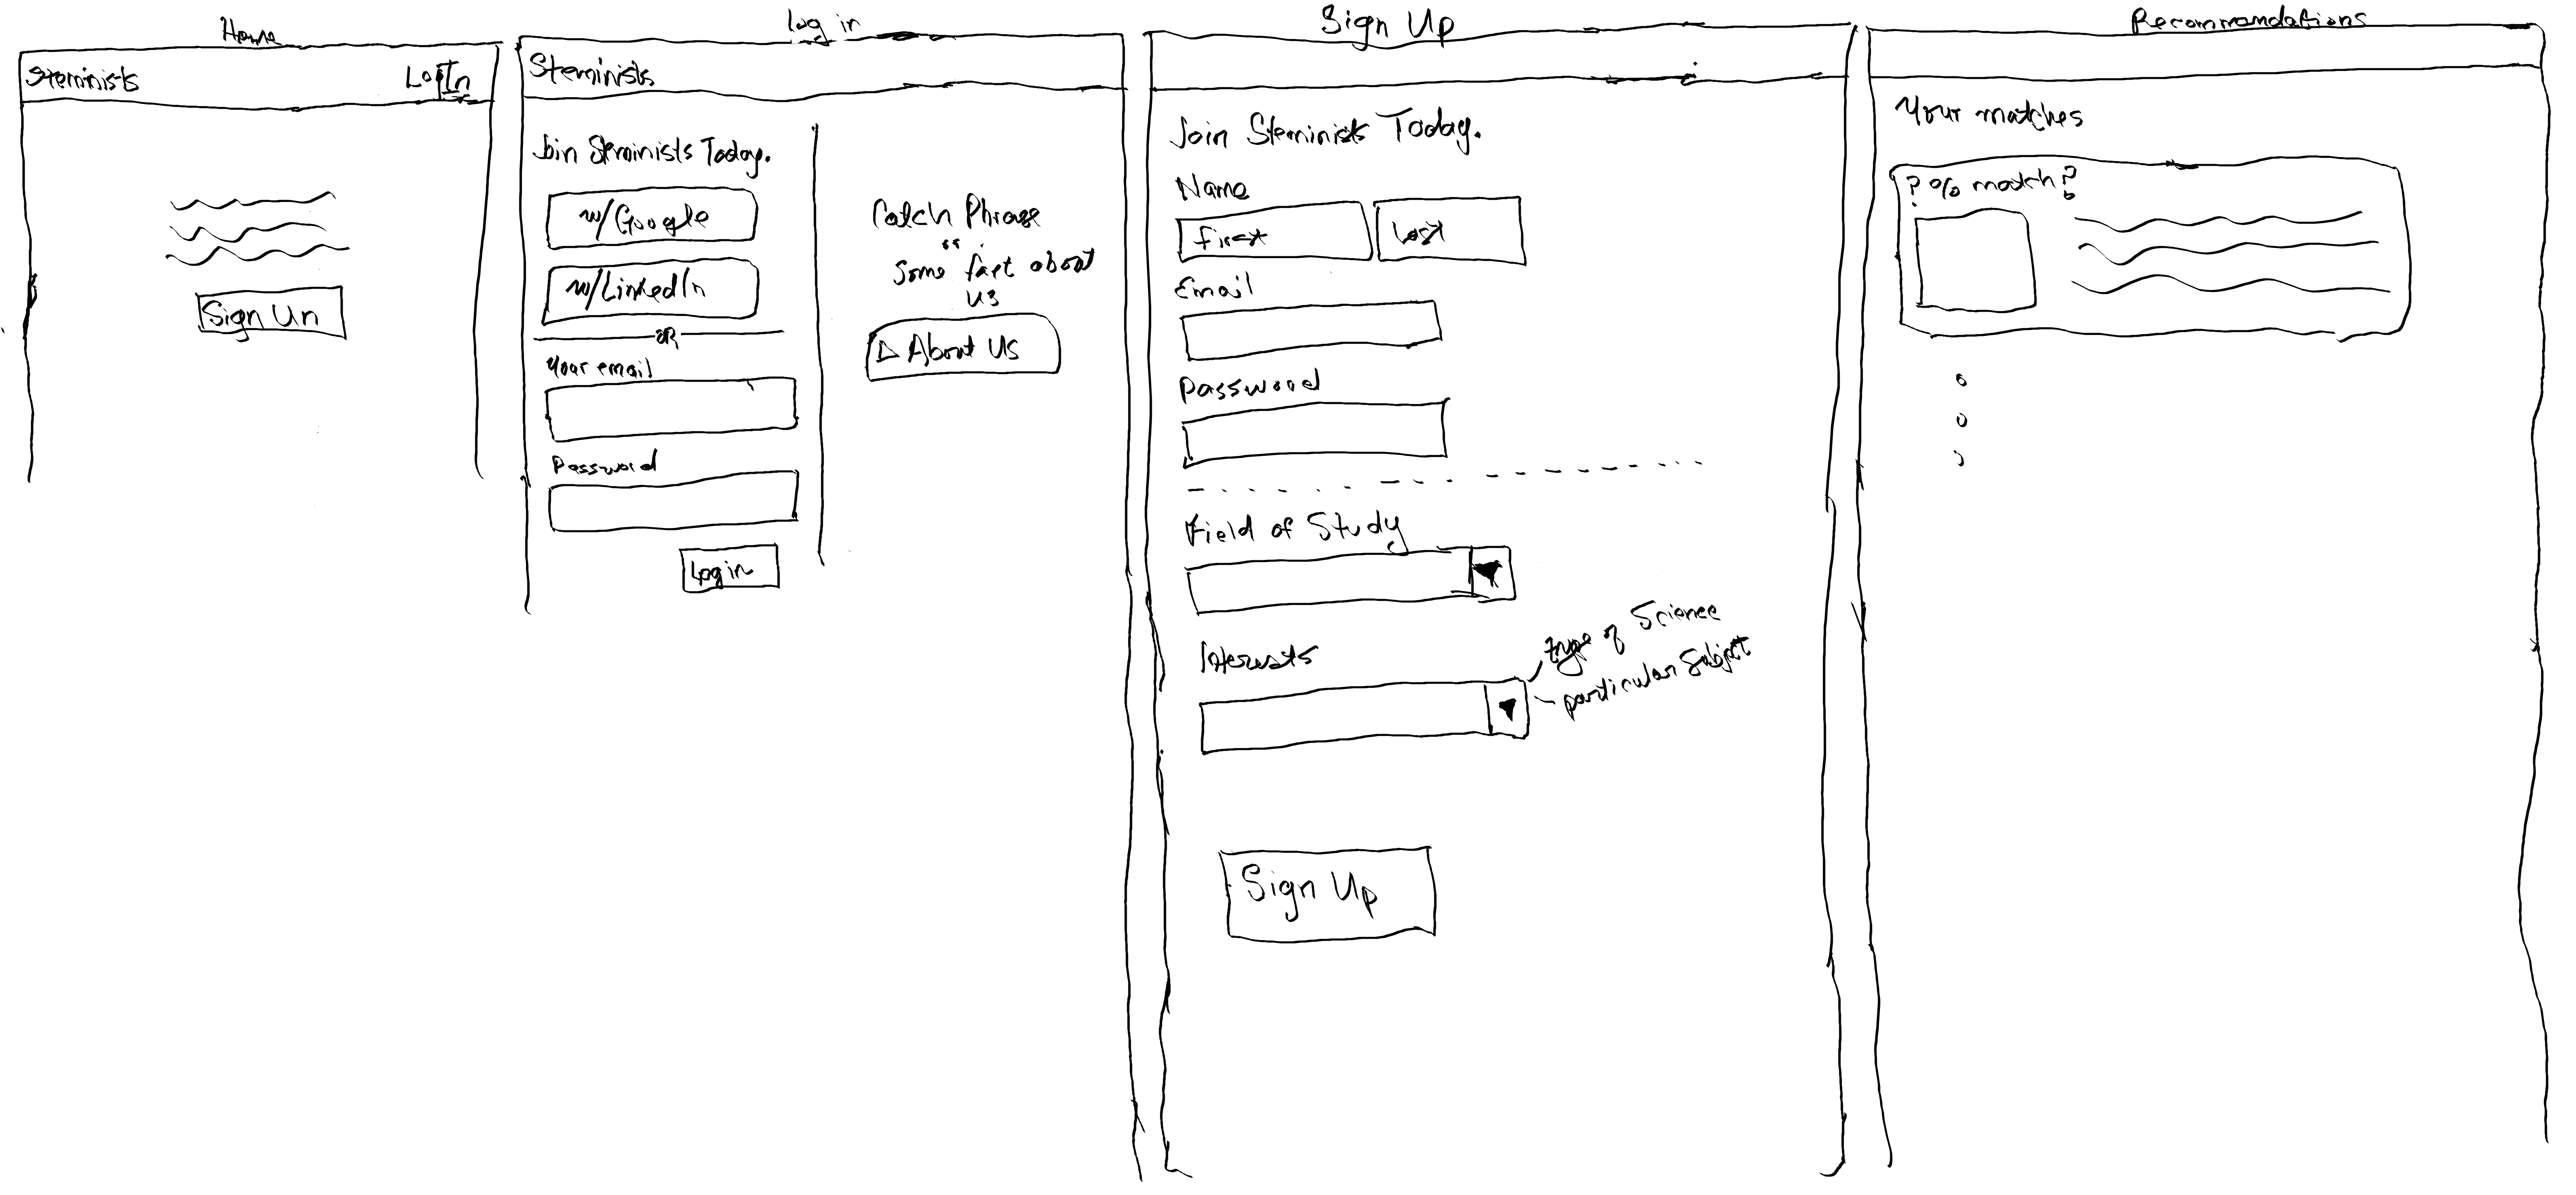 Home
Steminists
LogIn
Sign Un
Log in
Steminists
Join Steminists Today.
w/Google
w/LinkedIn
OR
Your email
Password
Login
Catch Phrase
"
Some fact about
us
▷ About Us
Sign Up
Join Steminists Today.
Name
First
Last
Email
Password
Field of Study
Interests
type of Science
- particular Subject
Sign Up
Recommendations
Your matches
? % match?